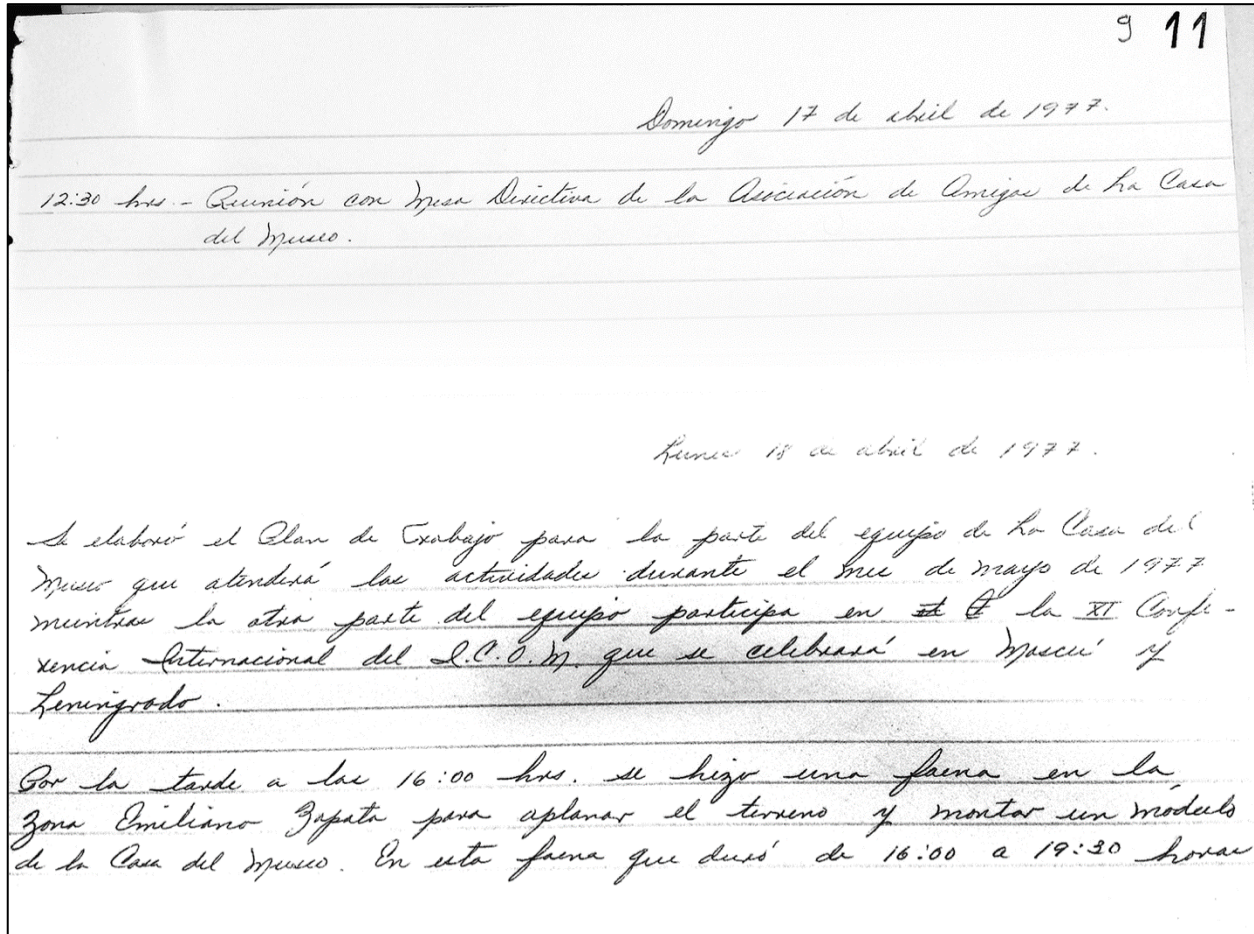 9 11
Domingo 17 de abril de 1977.
12:30 hrs.- Reunión con Mesa Directiva de la Asociación de Amigos de La Casa
del Museo.
Lunes 18 de abril de 1977.
Se elaboró el Plan de Trabajo para la parte del equipo de La Casa del
Museo que atenderá las actividades durante el mes de mayo de 1977
mientras la otra parte del equipo participa en la XI Confe-
rencia Internacional del I.C.O.M. que se celebrará en Moscú y
Leningrado.
Por la tarde a las 16:00 hrs. se hizo una faena en la
Zona Emiliano Zapata para aplanar el terreno y montar un módulo
de la Casa del Museo. En esta faena que duró de 16:00 a 19:30 horas